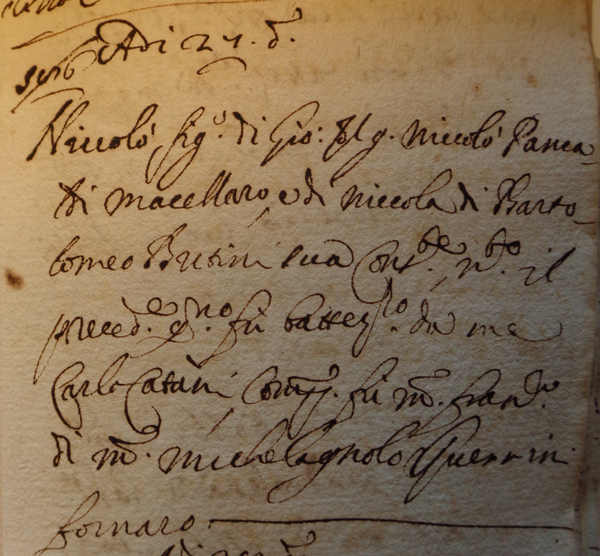 Adi 27. d.
Niccolò fig.º di Gio: del q. Niccolò Panca-
di macellaro, e di Niccola di Barto-
lomeo Butini sua Cons.te n.to il
preced.e g.no fù battez.to da me
Carlo Catani Comp. fù m. Fran.co
di m. Michelagnolo Guerrin
fornaro